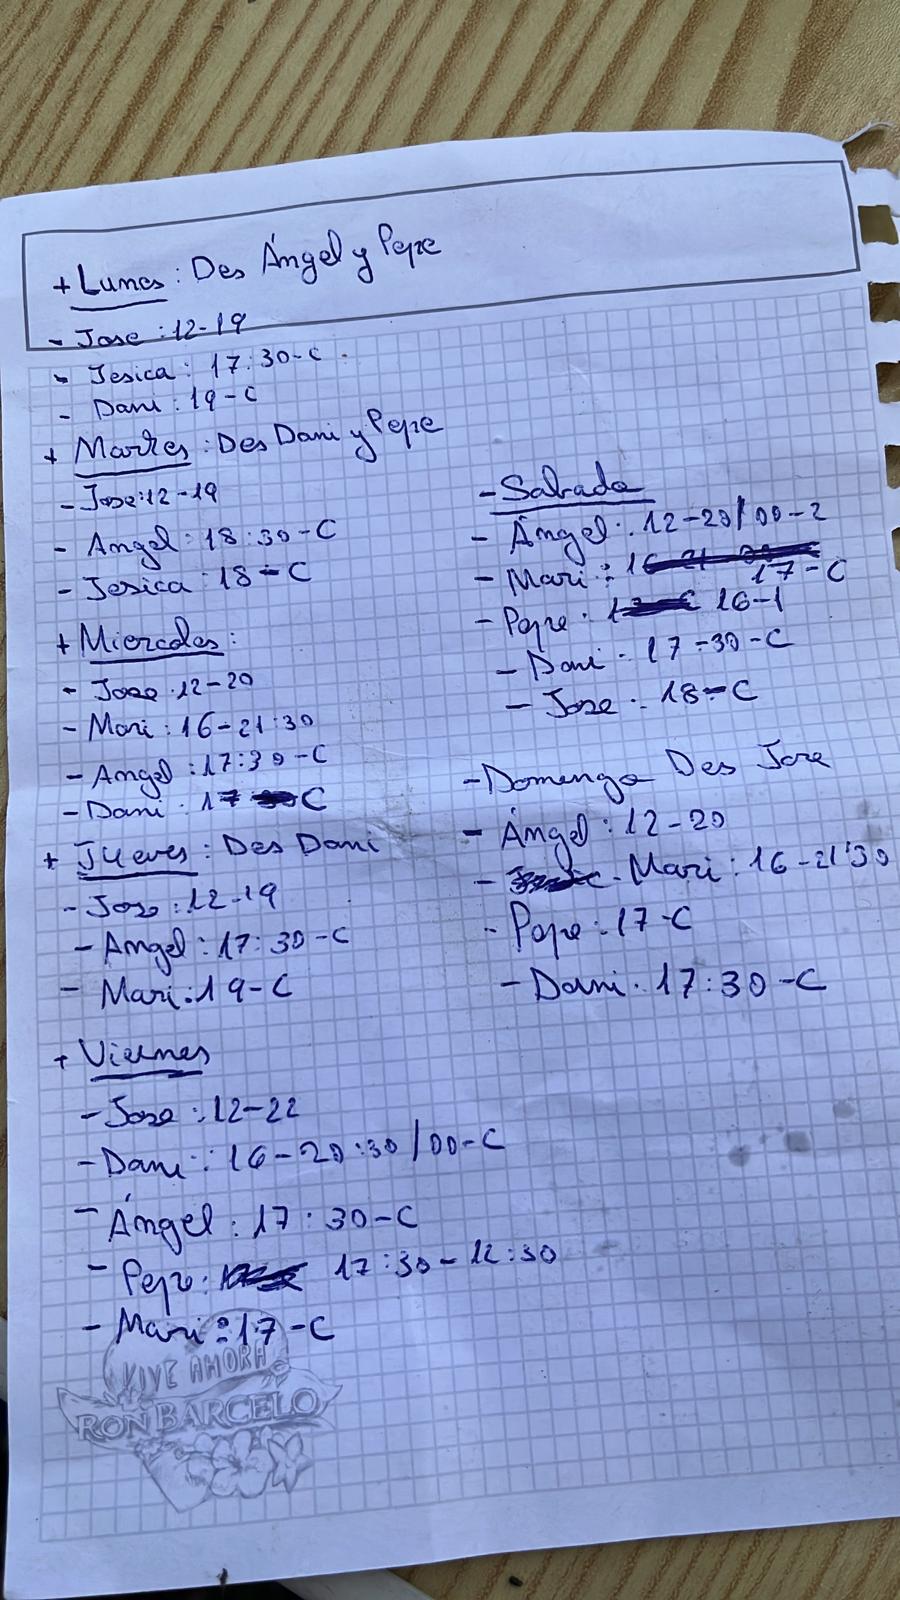 + Lunes : Des Ángel y Pepe
- Jose : 12-19
- Jesica : 17:30-C
- Dani : 19-C
+ Martes : Des Dani y Pepe
- Jose:12-19
- Angel : 18:30-C
- Jesica : 18-C
+ Miercoles :
- Jose 12-20
- Mari : 16-21:30
- Angel : 17:30-C
- Dani : 17 C
+ Jueves : Des Dani
- Jose : 12-19
- Angel : 17:30-C
- Mari : 19-C
+ Viernes
- Jose : 12-22
- Dani : 16-20:30/00-C
- Ángel : 17:30-C
- Pepe : 17:30-12:30
- Mari : 17-C
- Sabado
- Ángel : 12-20/00-2
- Mari : 17-C
- Pepe : 16-1
- Dani - 17-30-C
- Jose : 18-C
- Domingo Des Jose
- Ángel : 12-20
- Mari : 16-21'30
- Pepe : 17-C
- Dani. 17:30-C
VIVE AHORA
RON BARCELO